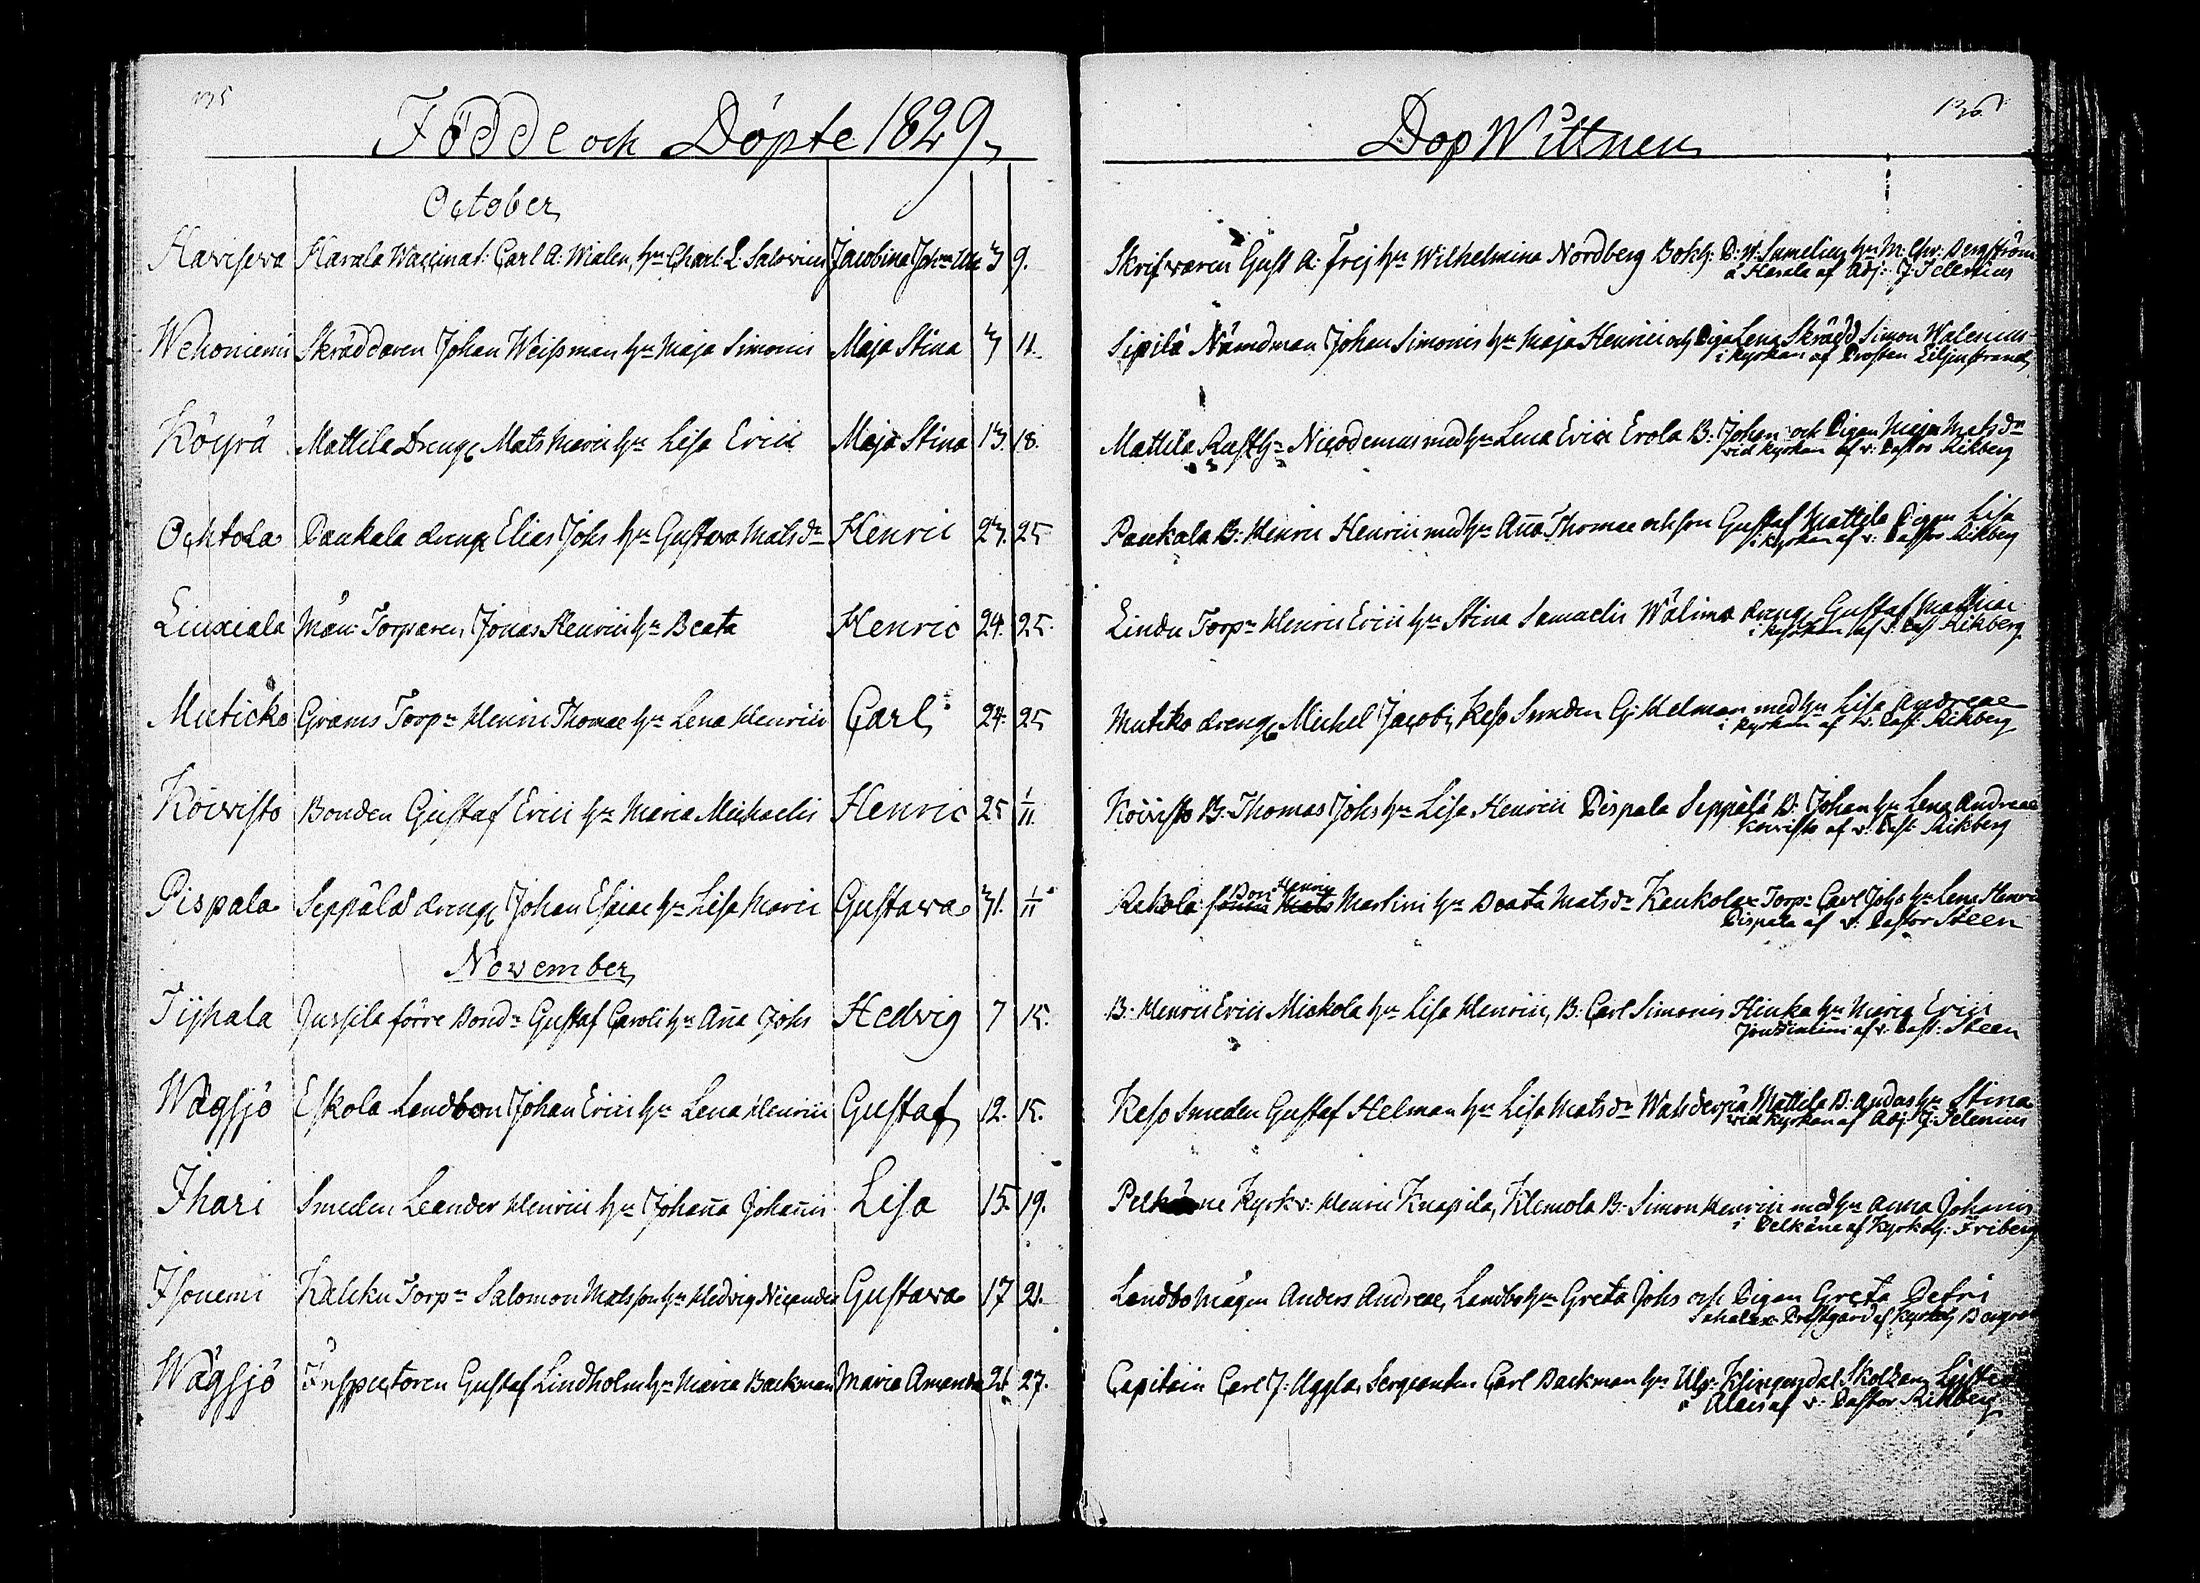 135
Födde och Döpte 1829,
October,
Hawisewa Harala Waccinat: Carl A: Wialen, hu Charl: L: Salovius Jacobina Joh:na 3 9.
Wehoniemi Skräddaren Johan Weissman hu Maja Simonis Maja Stina 3 11.
Köyrä Mattila Dreng Mats Marci hu Lisa Erici Maja Stina 13. 18.
Ochtola Paukala dreng Elias Johs hu Gustava Mats dr Henric 23. 25
Liuxiala Torparen, Jonas Henrici hu Beata Henric 24. 25.
Muticko Grams Torpn Henric Thomae hu Lena Henrici Carl 24. 25
Koivisto Bonden Gustaf Erici hu Maria Michaelis Henric 25 1/11.
Pispala Seppälä dreng Johan Esaiae hu Lisa Marci Gustava 31. 1/11
November,
Tijhala Jussila förre Bondn Gustaf Caroli hu Anna Johs Hedvig 7 15.
Wägsjö Eskola Landbon Johan Erici hu Lena Henrici Gustaf 12. 15.
Ihari Smeden Leander Henrici hu Johanna Johannis Lisa 15. 19.
Isoniemi Kalcku Torpn Salomon Matsson hu Hedvig Nicander Gustava 17 21.
Wägsjö Inspectoren Gustaf Lindholm hu Maria Backman Maria Amanda 21. 27.
136
Dop Wittnen
Skrifwaren Gust A: Frej hu Wilhelmina Nordberg Bokh: D: W: Sumelius hu M: Chr: Bergström
å Harala af Adj: J: Selenius
Sipilä Nämdman Johan Simonis hu Maja Henrici och Pigan Lena Skrädd Simon Walenius
i kyrkan af Prosten Liljenstrand,
Mattila Rusth: Nicodemus med hu Lena Erici Erola B: Johan och Pigan Maja Mats dr
vid kyrkan af v: Pastor Rikberg
Paukala B: Henric Henrici med hu Anna Thomae och son Gustaf Mattila Pigan Lisa
i kyrkan af v: Pastor Rikberg
Lindu Torpn Henric Erici hu Stina Samuelis Wälimä dreng Gustaf Matthiae
i kyrkan af v: Past Rikberg
Mutiko dreng Michel Jacobi, Keso Smeden G: Helman med hu Lisa Andreae
i kyrkan af v: Past: Rikberg
Koivisto B: Thomas Johs hu Lisa Henrici Pispala Seppälä B: Johan hu Lena Andreae
Koivisto af v: Past: Rikberg
Rekola Bon Henric Mats Martini hu Beata Mats dr Kaukola Torpn Carl Johs hu Lena Henrici
Pispala af v: Pastor Steen
B: Henric Erici Mickola hu Lisa Henrici, B: Carl Simonis Hinka hu Maria Erici
af v: Past: Steen
Keso Smeden Gustaf Helman hu Lisa Mats dr Mattila B: Anders hu Stina
vid kyrkan af Adj: J: Selenius
Pelkäne Kyrkv: Henric Knapila, Klemola B: Simon Henrici med hu Anna Johannis
i Pelkäne af Kyrkoh: Friberg
Landbo Mågen Anders Andreae, Landbo hu Greta Johs och Pigan Greta Petri
Sahalax Prestgård af Kyrkoh
Capitain Carl J: Uggla, Sergeanten Carl Backman hu Ulr: Klingendal
i af v: Pastor Rikberg